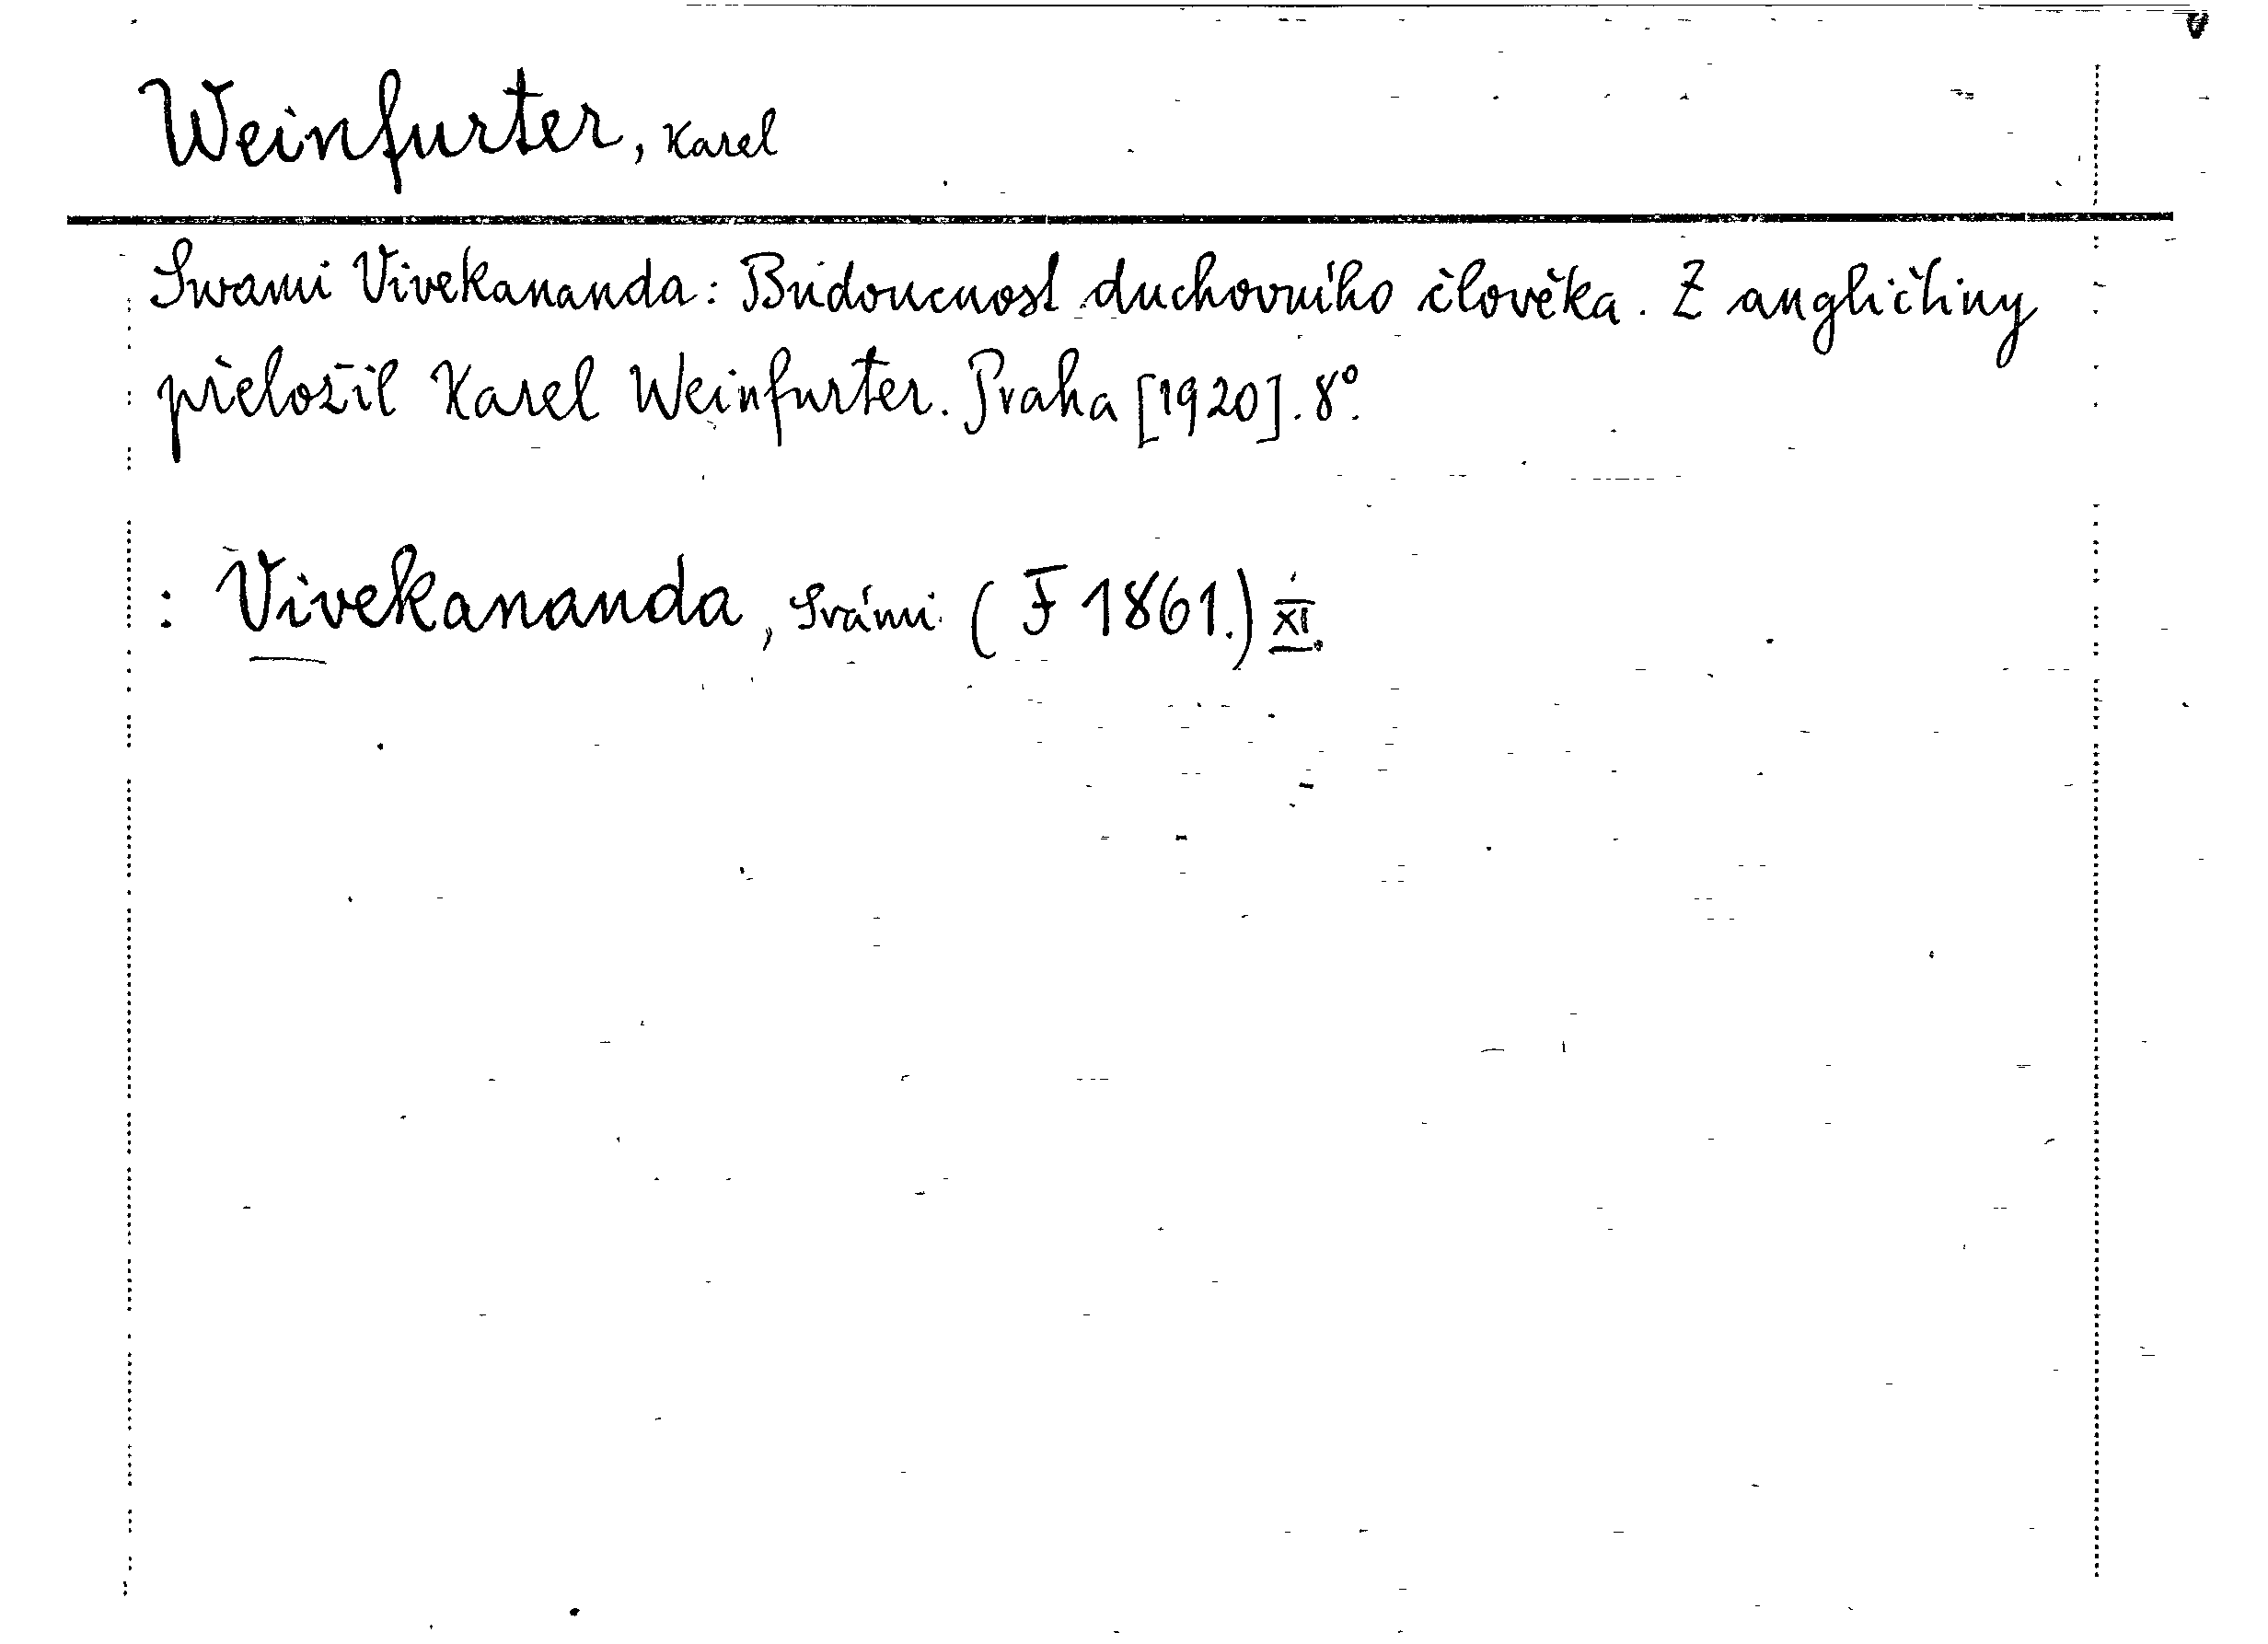 Weinfurter, Karel
Swami Vivekananda: Budoucnost duchovního člověka. Z angličtiny
přeložil Karel Weinfurter. Praha [1920]. 8°.
: Vivekananda, Svámi. (F 1861.) XI.